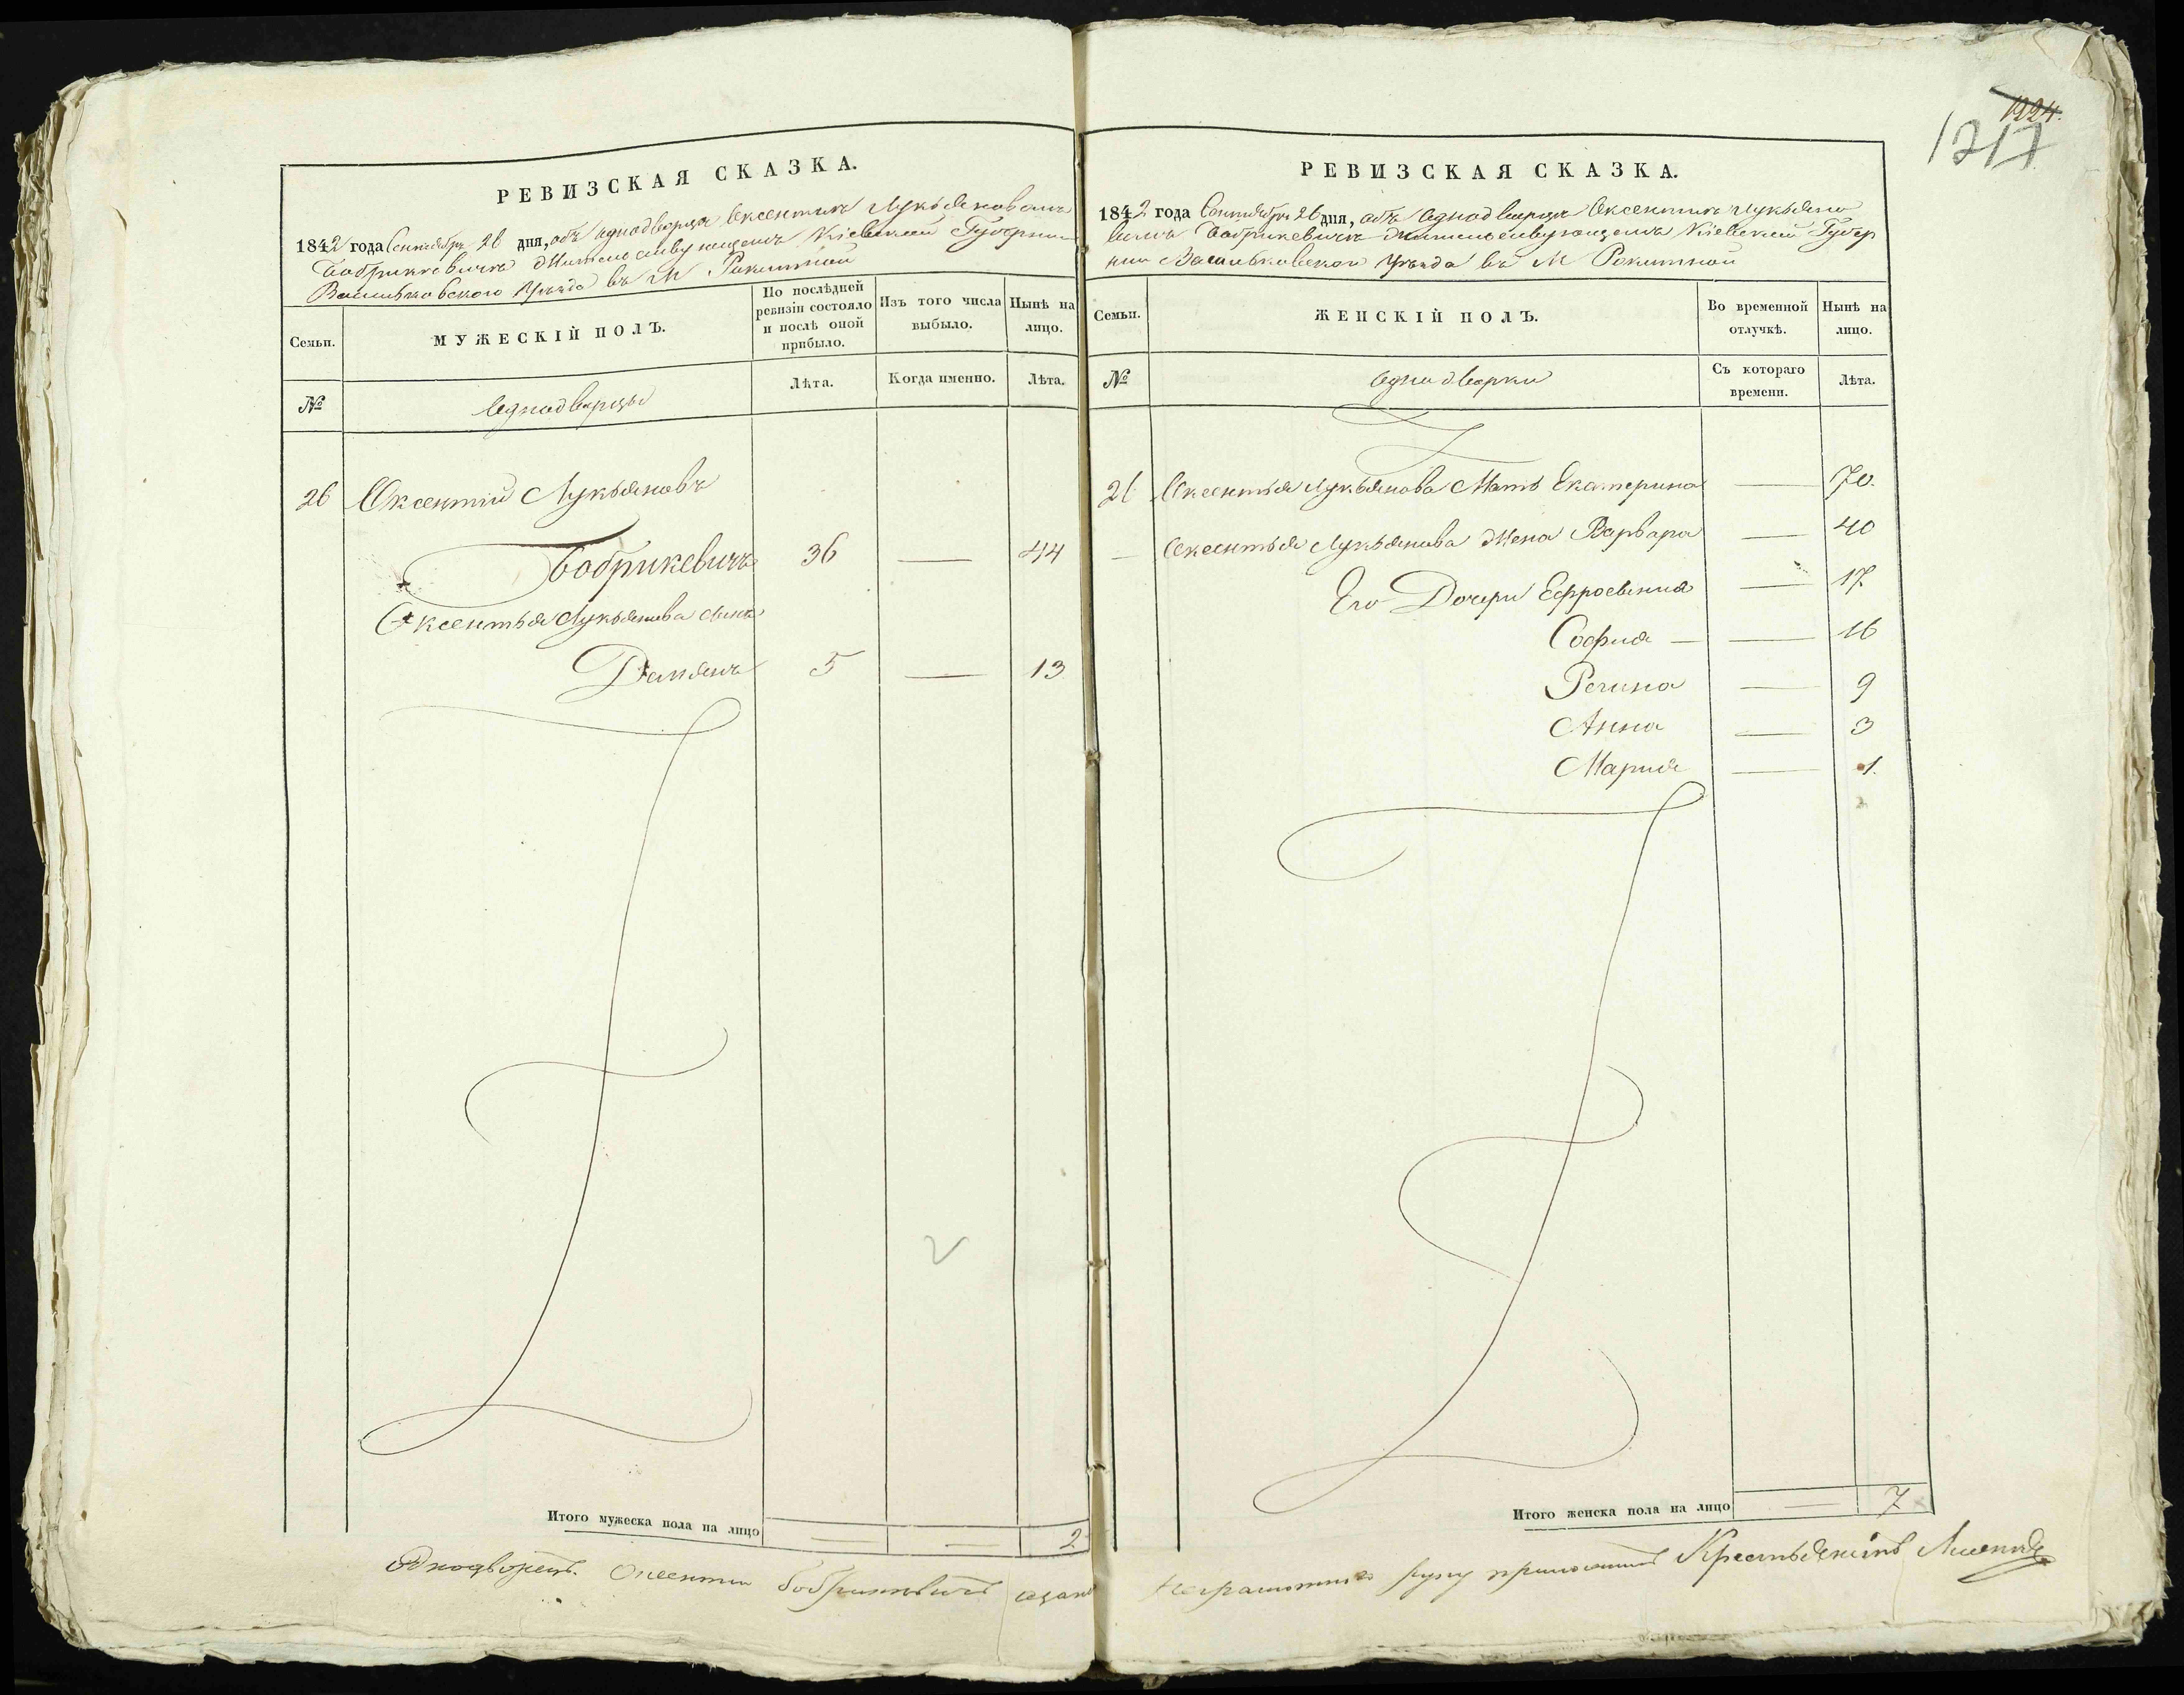 РЕВИЗСКАЯ СКАЗКА.
1842 года Сентября 26 дня, объ однодворце Оксентии Лукьяновомъ
Бобрикевиче жительствующемъ Кіевской Губернии
Васильковского Уезда въ М Рокитной
Семьи.
МУЖЕСКІЙ ПОЛЪ.
По послѣдней ревизіи состояло и послѣ оной прибыло.
Изъ того числа выбыло.
Нынѣ на лицо.
№
Однодворцы
Лѣта.
Когда именно.
Лѣта.
26 Оксентий Лукьяновъ
Бобрикевичъ 36 — 44
Оксентья Лукьянова сынъ
Демянъ 5 — 13
Итого мужеска пола на лицо — — 2
Однодворецъ Оксентии Бобрикевичъ
1224.
1217
РЕВИЗСКАЯ СКАЗКА.
1842 года Сентября 26 дня, объ Однодворце Оксентии Лукьяно
вомъ Бобрикевиче жительствующемъ Кіевской Губер
нии Васильковского Уезда въ М Рокитной
Семьи.
ЖЕНСКІЙ ПОЛЪ.
Во временной отлучкѣ.
Нынѣ на лицо.
№
Однодворки
Съ котораго времени.
Лѣта.
26 Оксентья Лукьянова Мать Екатерина — 70.
— Оксентья Лукьянова Жена Варвара — 40
Его Дочери Ефросиния — 17
София — — 16
Регина — 9
Анна — 3
Мария — 1.
Итого женска пола на лицо — 7
неграмотного руку приложилъ Крестьянинъ